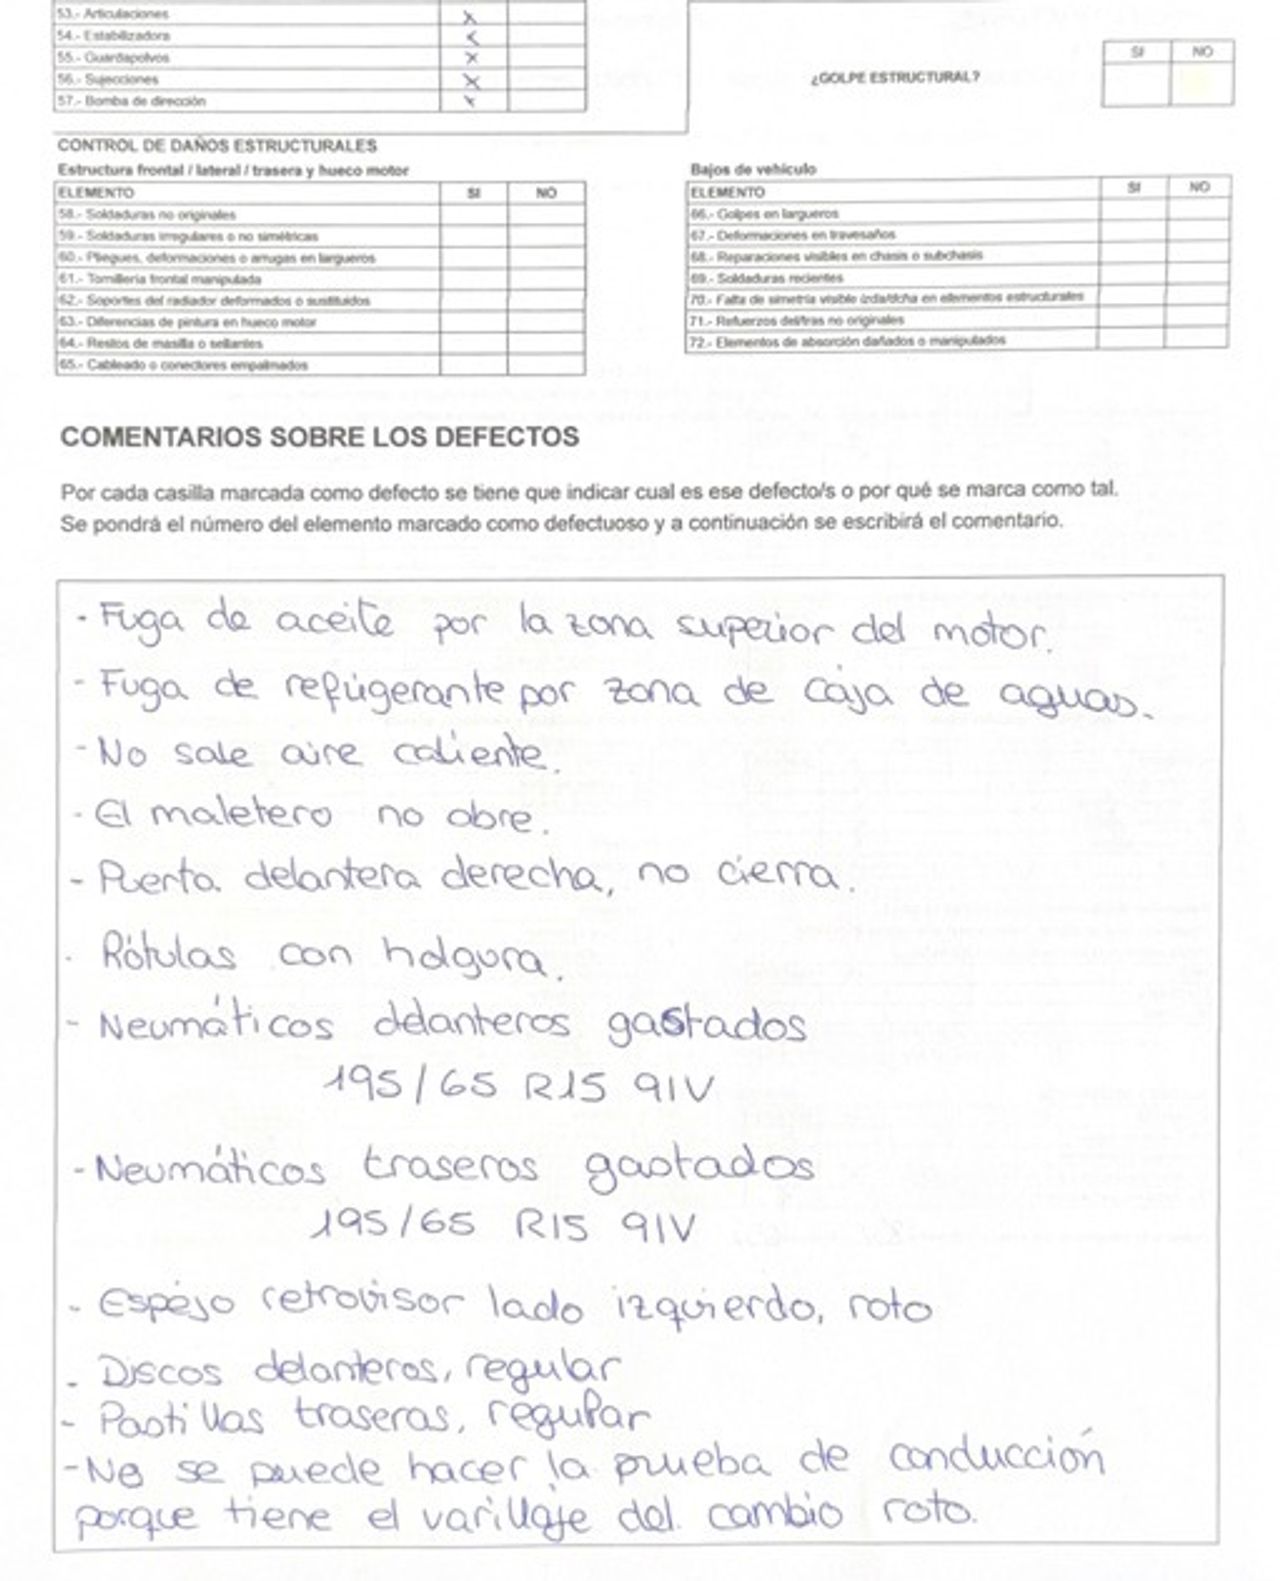 53.- Articulaciones X
54.- Estabilizadora X
55.- Guardapolvos X
56.- Sujecciones X
57.- Bomba de dirección X
SI NO
¿GOLPE ESTRUCTURAL?
CONTROL DE DAÑOS ESTRUCTURALES
Estructura frontal / lateral / trasera y hueco motor
ELEMENTO SI NO
58.- Soldaduras no originales
59.- Soldaduras irregulares o no simétricas
60.- Pliegues, deformaciones o arrugas en largueros
61.- Tornillería frontal manipulada
62.- Soportes del radiador deformados o sustituidos
63.- Diferencias de pintura en hueco motor
64.- Restos de masilla o sellantes
65.- Cableado o conectores empalmados
Bajos de vehículo
ELEMENTO SI NO
66.- Golpes en largueros
67.- Deformaciones en travesaños
68.- Reparaciones visibles en chasis o subchasis
69.- Soldaduras recientes
70.- Falta de simetría visible izda/dcha en elementos estructurales
71.- Refuerzos del/tras no originales
72.- Elementos de absorción dañados o manipulados
COMENTARIOS SOBRE LOS DEFECTOS
Por cada casilla marcada como defecto se tiene que indicar cual es ese defecto/s o por qué se marca como tal.
Se pondrá el número del elemento marcado como defectuoso y a continuación se escribirá el comentario.
- Fuga de aceite por la zona superior del motor.
- Fuga de refrigerante por zona de caja de aguas.
- No sale aire caliente.
- El maletero no abre.
- Puerta delantera derecha, no cierra.
- Rótulas con holgura.
- Neumáticos delanteros gastados
195/65 R15 91V
- Neumáticos traseros gastados
195/65 R15 91V
- Espejo retrovisor lado izquierdo, roto
- Discos delanteros, regular
- Pastillas traseras, regular
- No se puede hacer la prueba de conducción
porque tiene el varillaje del cambio roto.